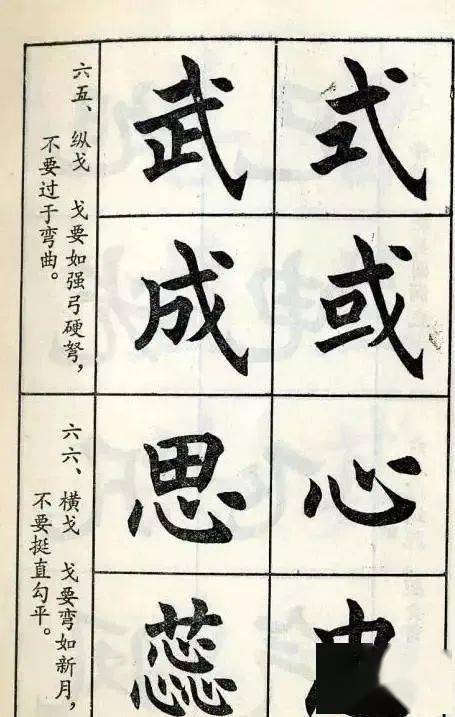 式
或
武
成
六五、纵戈 戈要如强弓硬弩，
不要过于弯曲。
心
思
蕊
六六、横戈 戈要弯如新月，
不要挺直勾平。